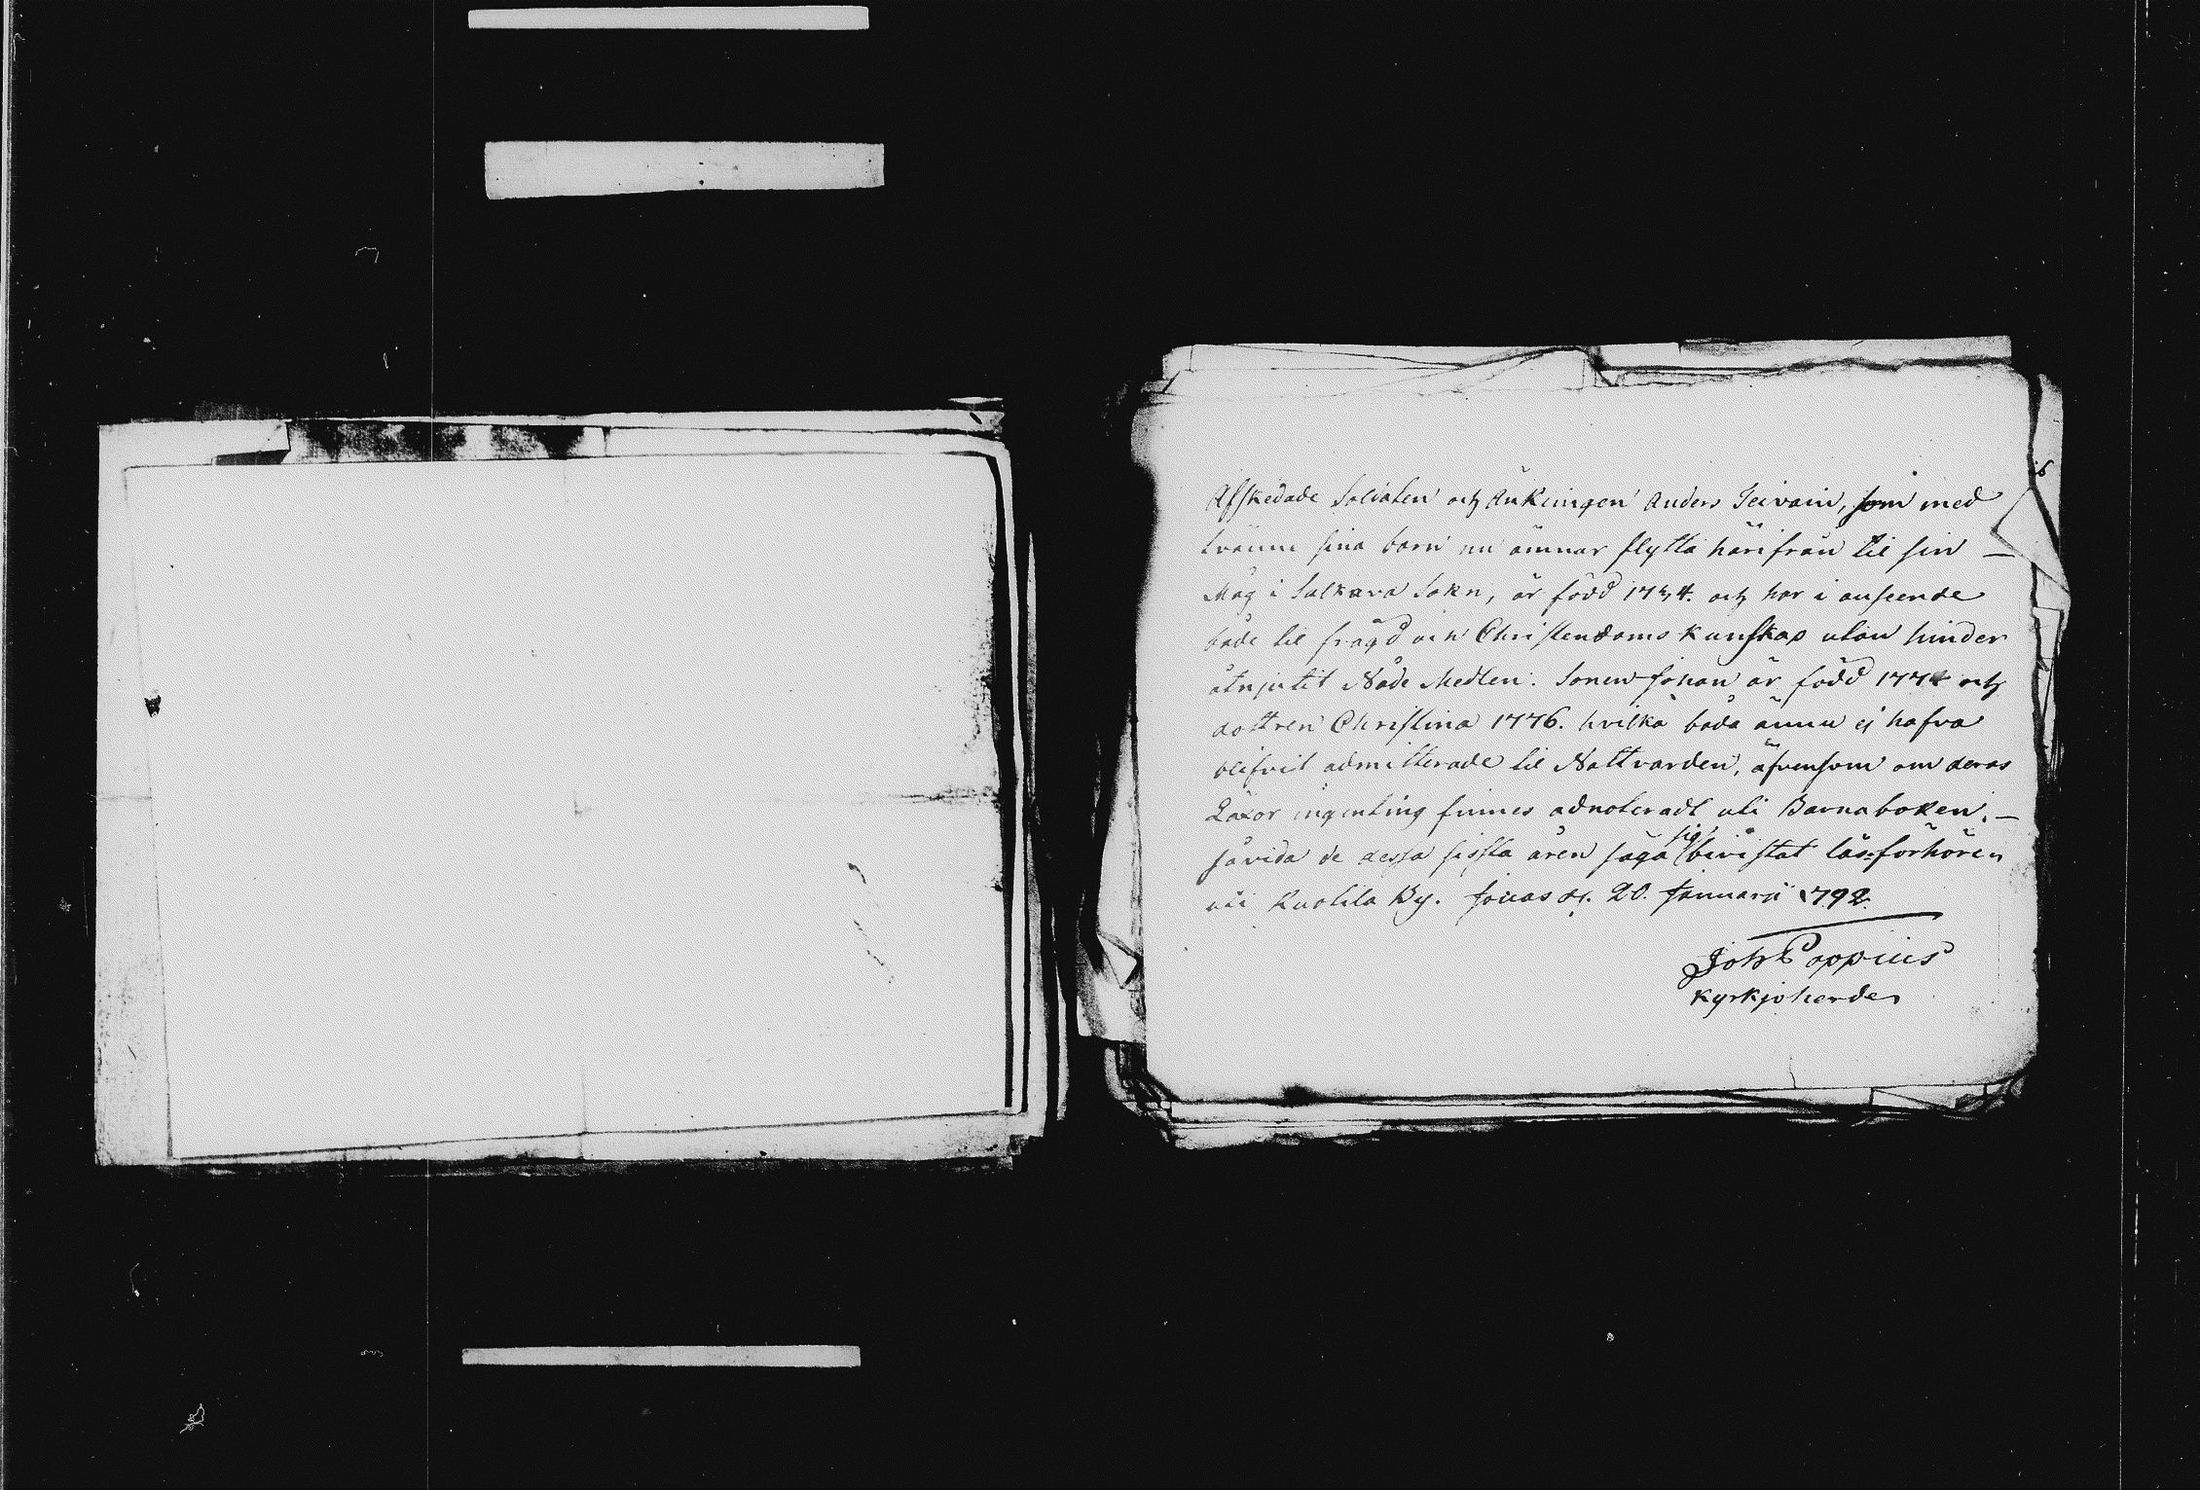 Afskedade Soldaten och Änkiingen Anders Teivain, som med
tvänne sina barn nu ämnar flytta härifrån til sin —
Måg i Sulkava Sokn, är född 1734. och har i anseende
både til frägd och Christendoms kunskap utan hinder
åtnjutit Nåde Medlen. Sonen Johan är född 1774 och
dottren Christina 1776. hvilka båda ännu ej hafva
blifvit admitterade til Nattvarden, äfvensom om deras
Läxor ingenting finnes adnoteradt uti Barnaboken. —
såvida de dessa sista åren säga sig bivistat läs-förhören
uti By. Jouas d. 20. Januarii 1792.
Joh Poppius
Kyrkjoherde